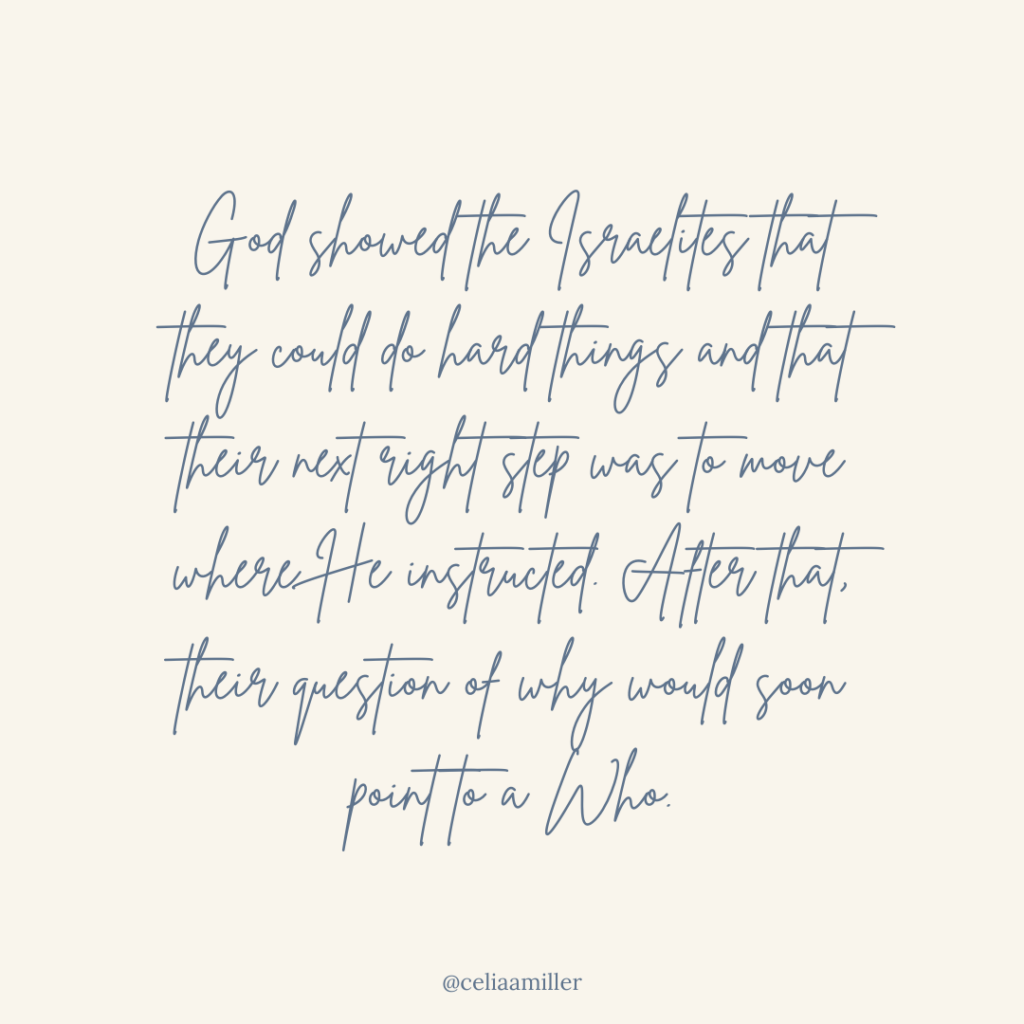 God showed the Israelites that
they could do hard things and that
their next right step was to move
where He instructed. After that,
their question of why would soon
point to a Who.
@celiaamiller